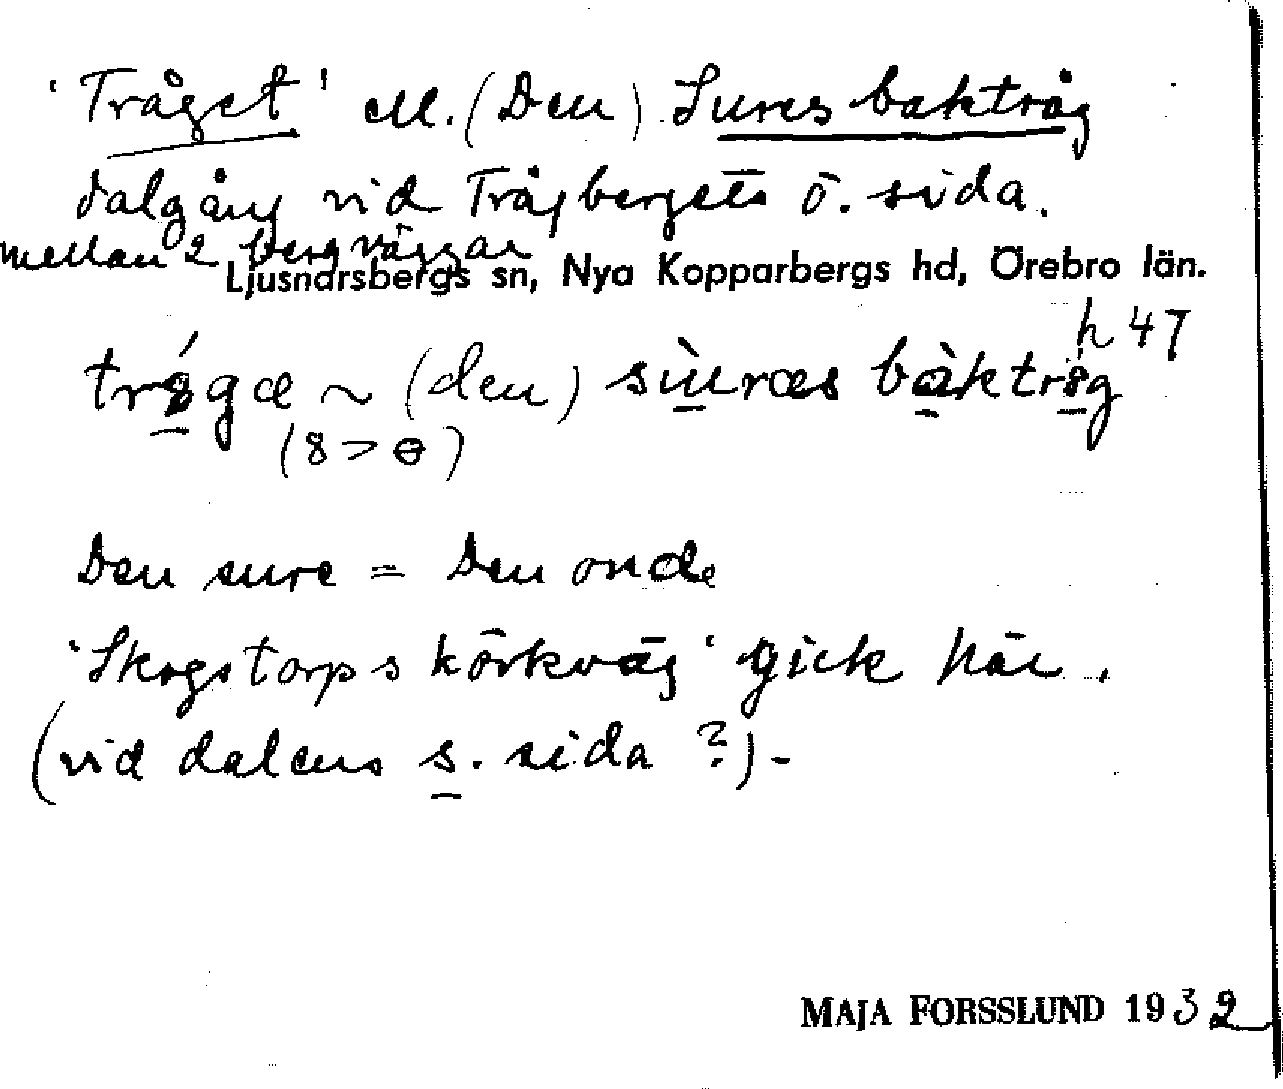 'Tråget' ell. (Den) Sures baktråg
dalgång vid Trågbergets ö. sida.
mellan 2 bergväggar
Ljusnarsbergs sn, Nya Kopparbergs hd, Örebro län.
h 47
tr8́gæ ~ (den) sùræs bàktr8g
(8 > ɵ)
Den sure = Den onde
'Skogstorps körkväg' gick här.
(vid dalens s. sida ?) -
MAJA FORSSLUND 1932